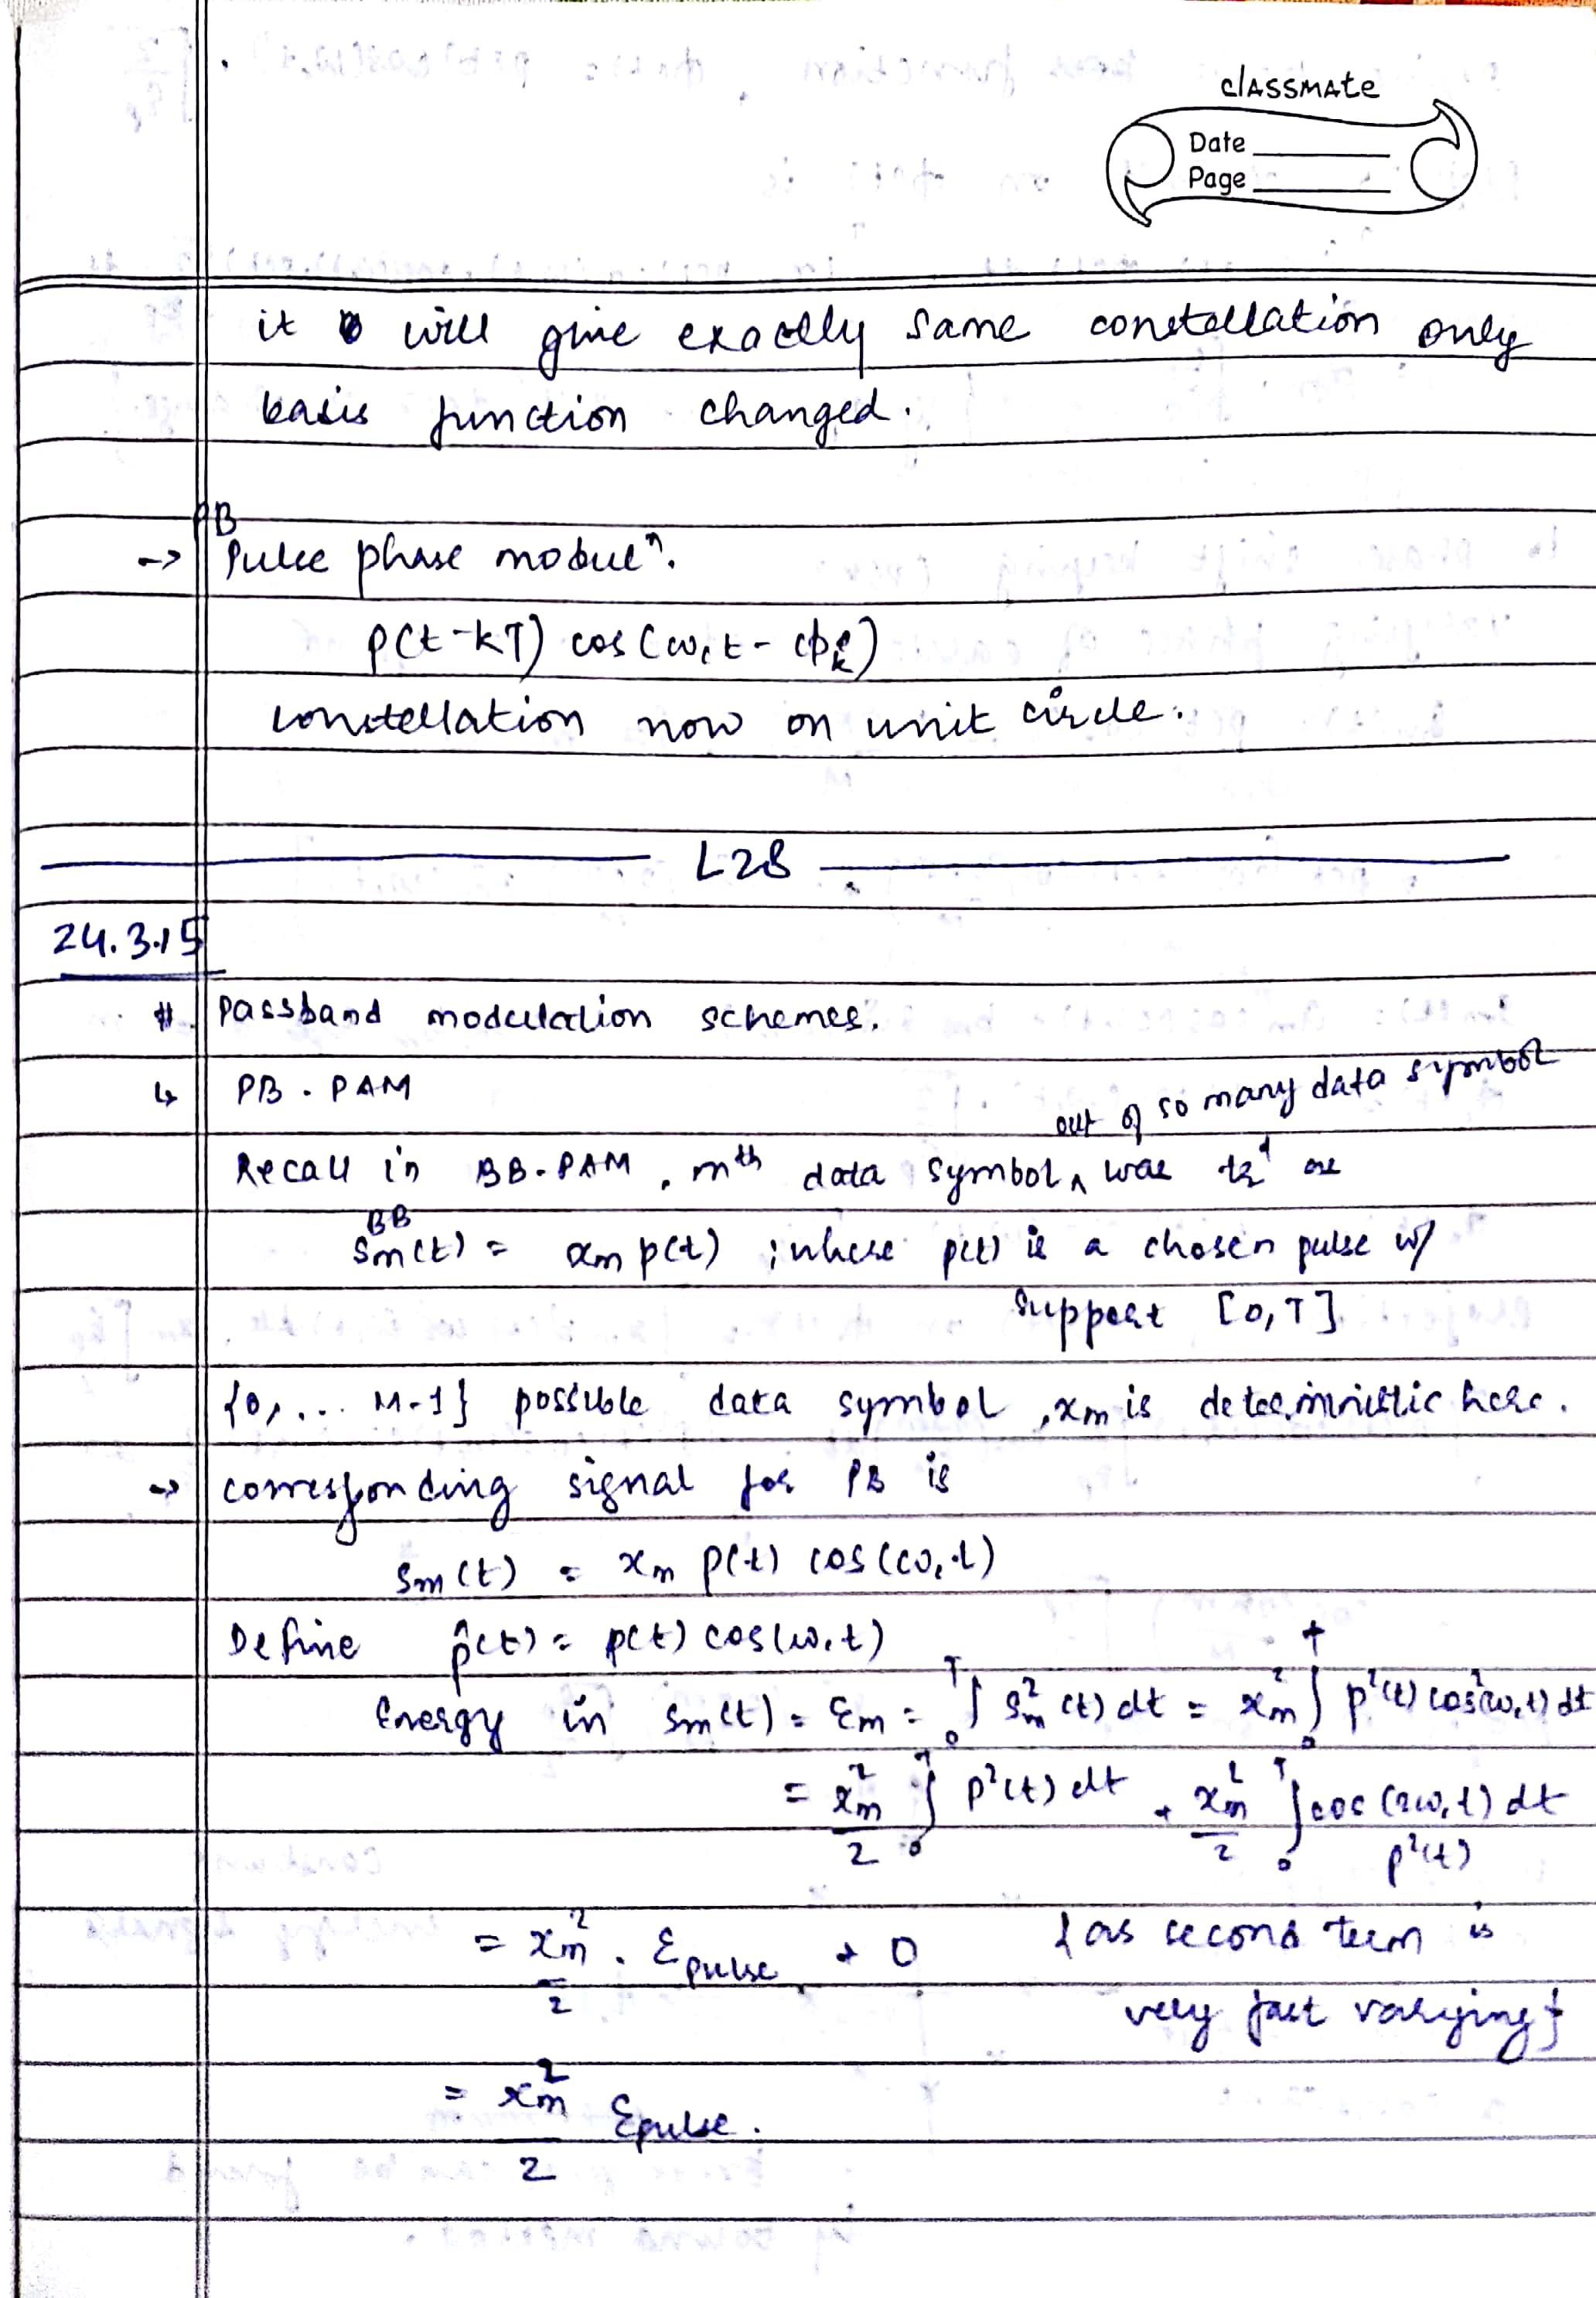 classmate
Date
Page
it will give exactly same constellation only
basis function changed.
PB
-> Pulse phase modulⁿ.
p(t-kT) cos(ωct - ϕk)
constellation now on unit circle.
L28
24.3.15
# Passband modulation schemes.
↳ PB-PAM
out of so many data symbol
Recall in BB-PAM, mth data symbol ∧ was txd as
sm^BB(t) = xm p(t) ; where p(t) is a chosen pulse w/
support [0,T]
{0,... M-1} possible data symbol, xm is deterministic here.
-> corresponding signal for PB is
sm(t) = xm p(t) cos(ωct)
Define p̂(t) = p(t) cos(ωct)
Energy in sm(t) = Ɛm = ∫₀ᵀ sm²(t) dt = xm² ∫₀ᵀ p²(t) cos²(ωct) dt
= xm²/2 ∫₀ᵀ p²(t) dt + xm²/2 ∫₀ᵀ cos(2ωct) dt
p²(t)
= xm²/2 . Ɛpulse + 0 {as second term is
very fast varying}
= xm²/2 Ɛpulse.